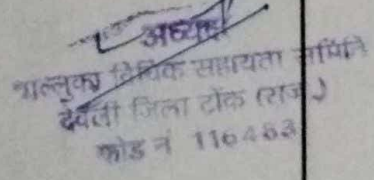 अध्यक्ष
ताल्लुका विधिक सहायता समिति
देवली जिला टोंक (राज.)
कोड नं 116453